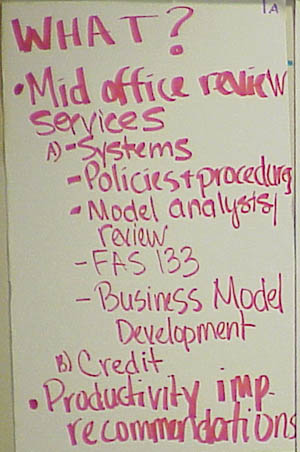 1A
WHAT?
• Mid office review
services
A) - Systems
- Policies + procedures
- Model analysis/
review
- FAS 133
- Business Model
Development
B) Credit
• Productivity imp.
recommendations